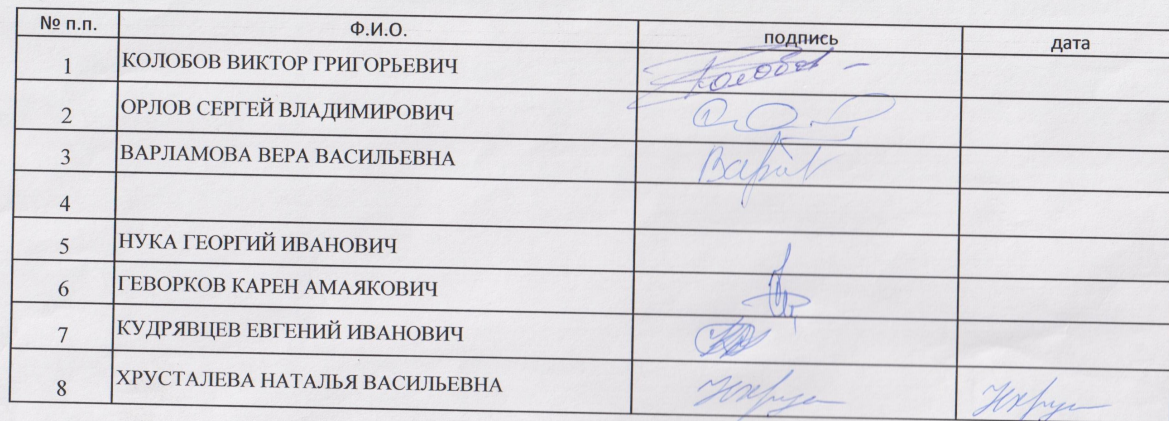 № п.п. Ф.И.О. подпись дата
1 КОЛОБОВ ВИКТОР ГРИГОРЬЕВИЧ Колобов
2 ОРЛОВ СЕРГЕЙ ВЛАДИМИРОВИЧ
3 ВАРЛАМОВА ВЕРА ВАСИЛЬЕВНА
4
5 НУКА ГЕОРГИЙ ИВАНОВИЧ
6 ГЕВОРКОВ КАРЕН АМАЯКОВИЧ
7 КУДРЯВЦЕВ ЕВГЕНИЙ ИВАНОВИЧ
8 ХРУСТАЛЕВА НАТАЛЬЯ ВАСИЛЬЕВНА